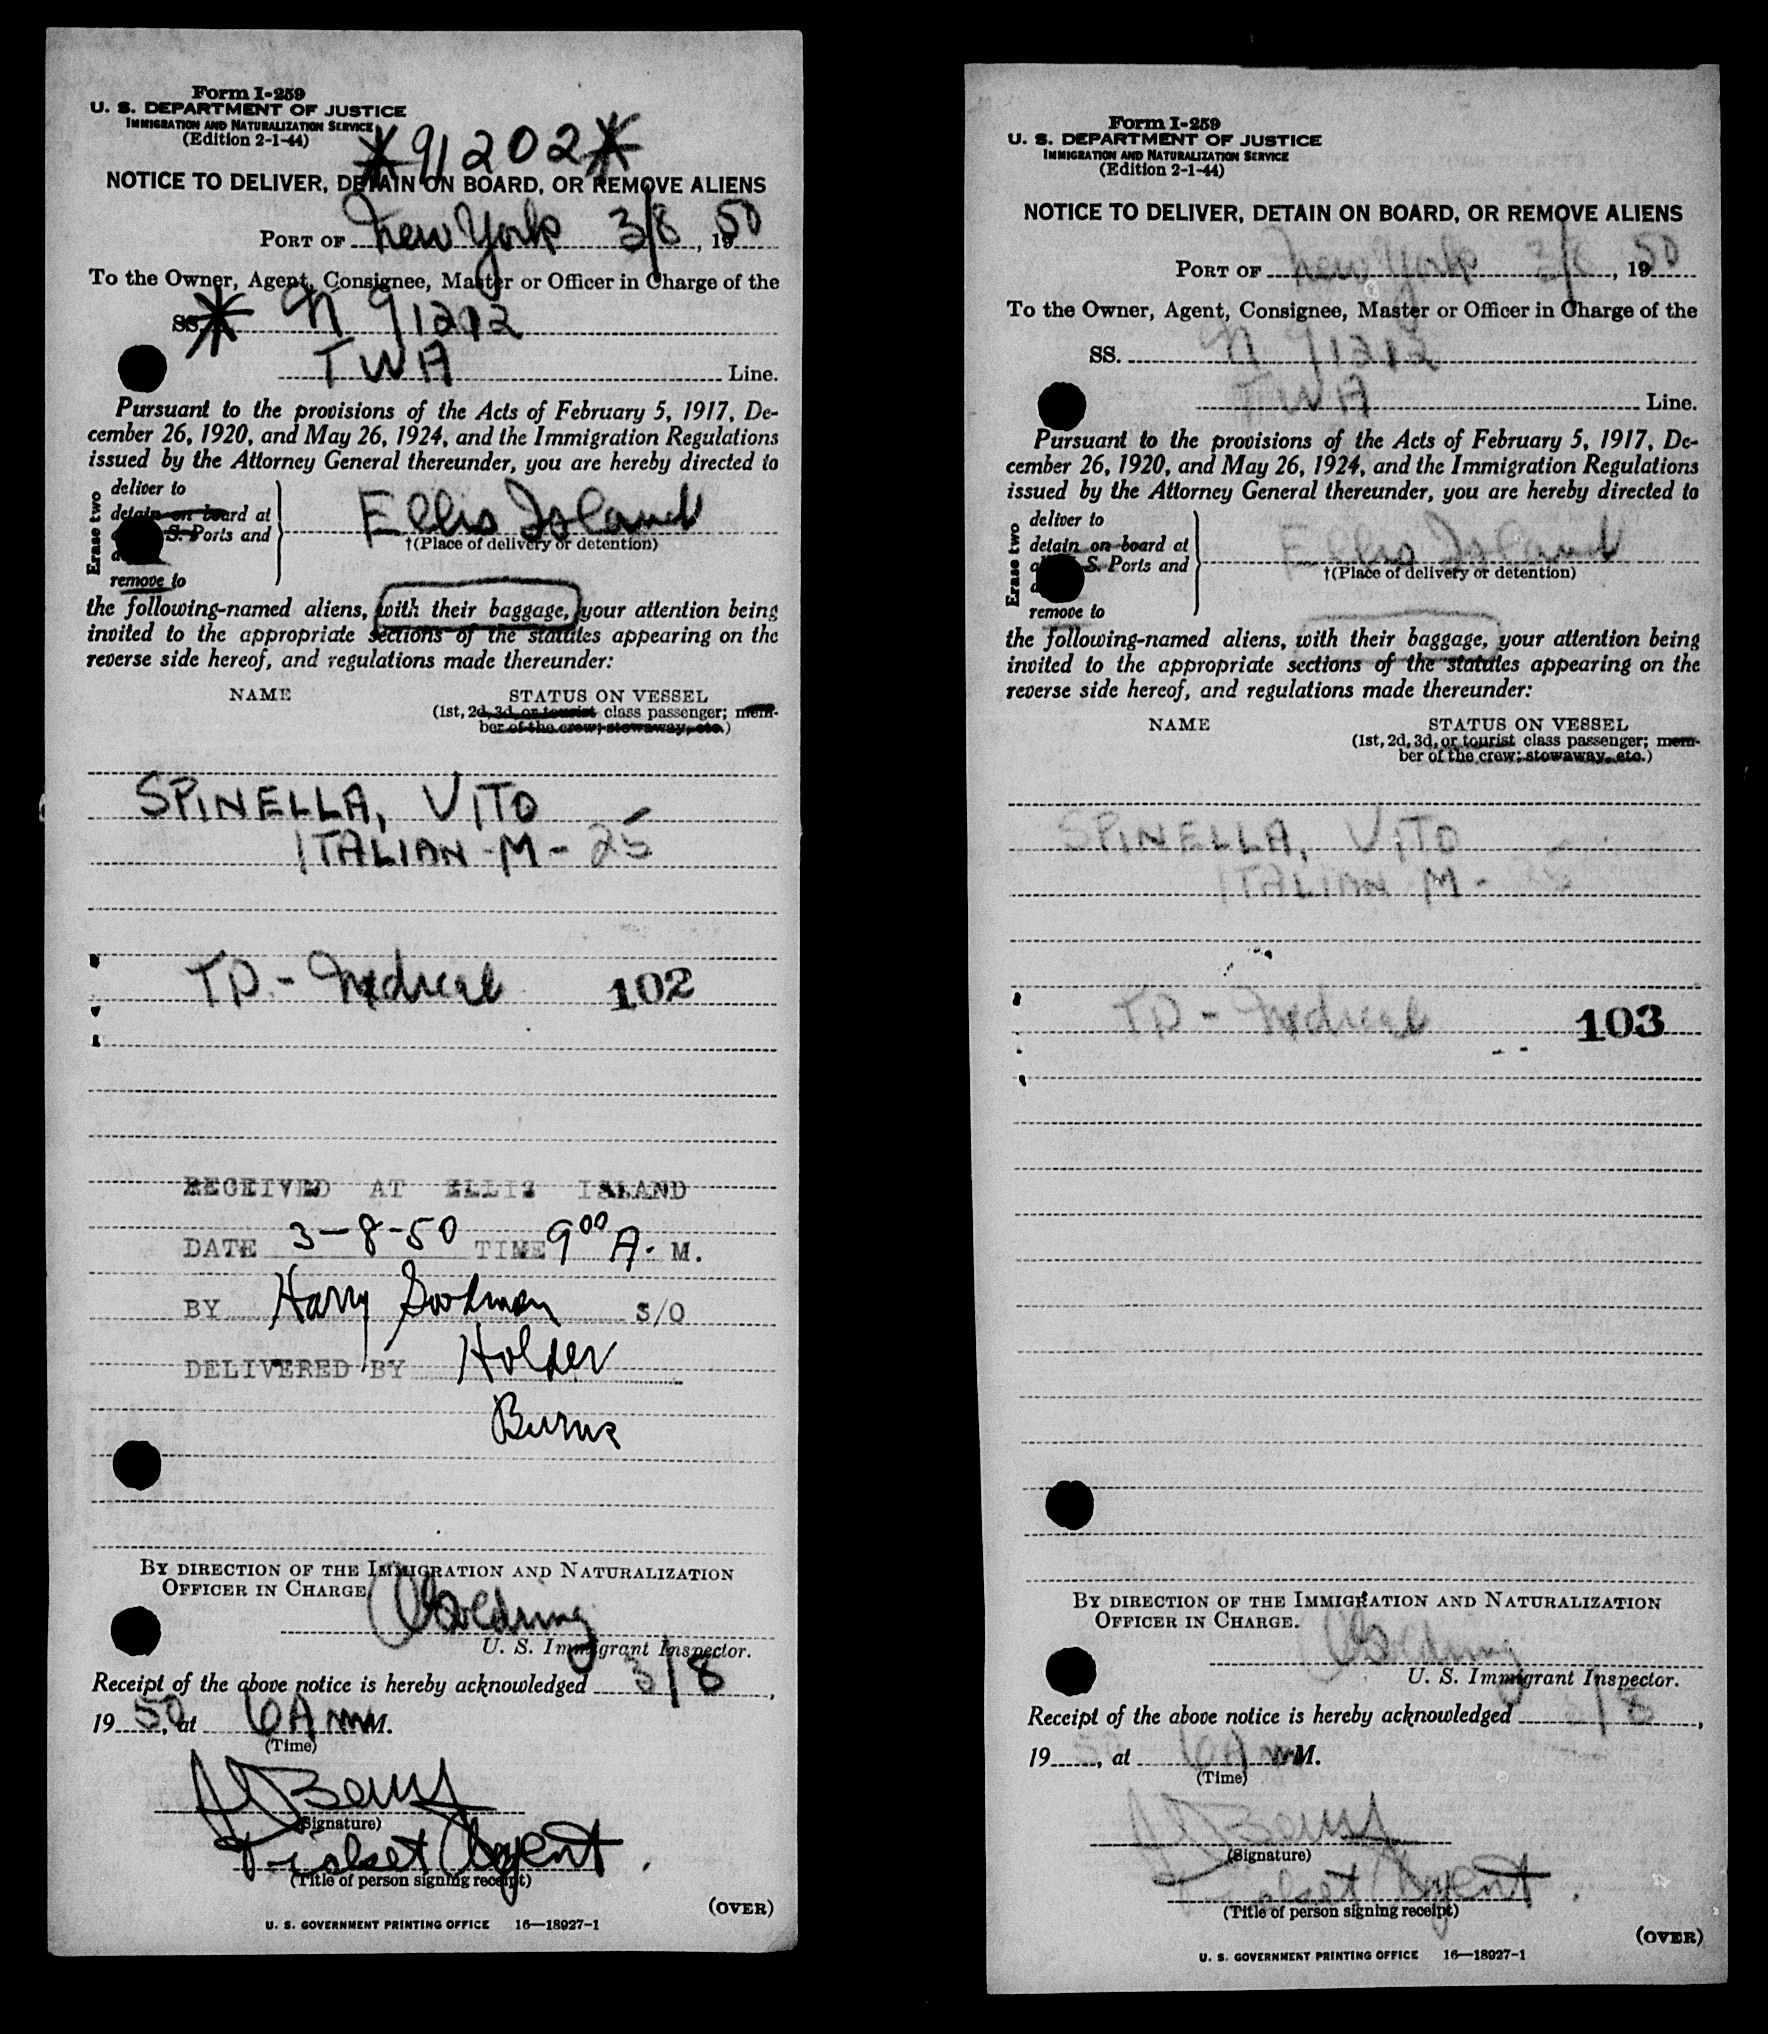 Form I-259
U. S. DEPARTMENT OF JUSTICE
IMMIGRATION AND NATURALIZATION SERVICE
(Edition 2-1-44)
*91202*
NOTICE TO DELIVER, DETAIN ON BOARD, OR REMOVE ALIENS
PORT OF New York 3/8, 1950
To the Owner, Agent, Consignee, Master or Officer in Charge of the
SS. * N 91202
TWA Line.
Pursuant to the provisions of the Acts of February 5, 1917, De-
cember 26, 1920, and May 26, 1924, and the Immigration Regulations
issued by the Attorney General thereunder, you are hereby directed to
Erase two
deliver to
detain on board at
S. Ports and
remove to
Ellis Island
†(Place of delivery or detention)
the following-named aliens, with their baggage, your attention being
invited to the appropriate sections of the statutes appearing on the
reverse side hereof, and regulations made thereunder:
NAME STATUS ON VESSEL
(1st, 2d, 3d, or tourist class passenger; mem-
ber of the crew; stowaway, etc.)
SPINELLA, VITO
ITALIAN - M - 25
TD - Medical 102
RECEIVED AT ELLIS ISLAND
DATE 3-8-50 TIME 9 00 A. M.
BY Harry Goodman S/O
DELIVERED BY Holder
Burns
BY DIRECTION OF THE IMMIGRATION AND NATURALIZATION
OFFICER IN CHARGE.
Golding
U. S. Immigrant Inspector.
Receipt of the above notice is hereby acknowledged 3/8,
1950, at 6 Am M.
(Time)
(Signature)
Ticket Agent
(Title of person signing receipt)
(OVER)
U. S. GOVERNMENT PRINTING OFFICE 16—18927-1
Form I-259
U. S. DEPARTMENT OF JUSTICE
IMMIGRATION AND NATURALIZATION SERVICE
(Edition 2-1-44)
NOTICE TO DELIVER, DETAIN ON BOARD, OR REMOVE ALIENS
PORT OF New York 3/8, 1950
To the Owner, Agent, Consignee, Master or Officer in Charge of the
SS. N 91202
TWA Line.
Pursuant to the provisions of the Acts of February 5, 1917, De-
cember 26, 1920, and May 26, 1924, and the Immigration Regulations
issued by the Attorney General thereunder, you are hereby directed to
Erase two
deliver to
detain on board at
S. Ports and
remove to
Ellis Island
†(Place of delivery or detention)
the following-named aliens, with their baggage, your attention being
invited to the appropriate sections of the statutes appearing on the
reverse side hereof, and regulations made thereunder:
NAME STATUS ON VESSEL
(1st, 2d, 3d, or tourist class passenger; mem-
ber of the crew; stowaway, etc.)
SPINELLA, VITO
ITALIAN M - 25
TD - Medical 103
BY DIRECTION OF THE IMMIGRATION AND NATURALIZATION
OFFICER IN CHARGE.
Golding
U. S. Immigrant Inspector.
Receipt of the above notice is hereby acknowledged 3/8,
1950, at 6 Am M.
(Time)
(Signature)
Ticket Agent
(Title of person signing receipt)
(OVER)
U. S. GOVERNMENT PRINTING OFFICE 16—18927-1